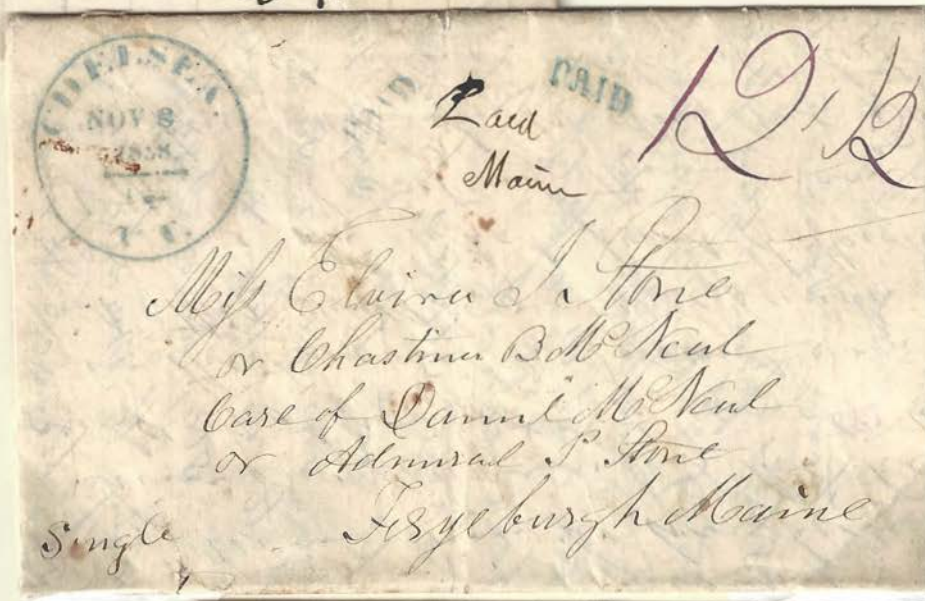 CHELSEA
NOV 8
1838
V T.
PAID
PAID
Paid
Maine
12 1/2
Miss Elvira J. Stone
or Chastina B McNeal
Care of Daniel McNeal
or Admiral P Stone
Fryeburgh Maine
Single